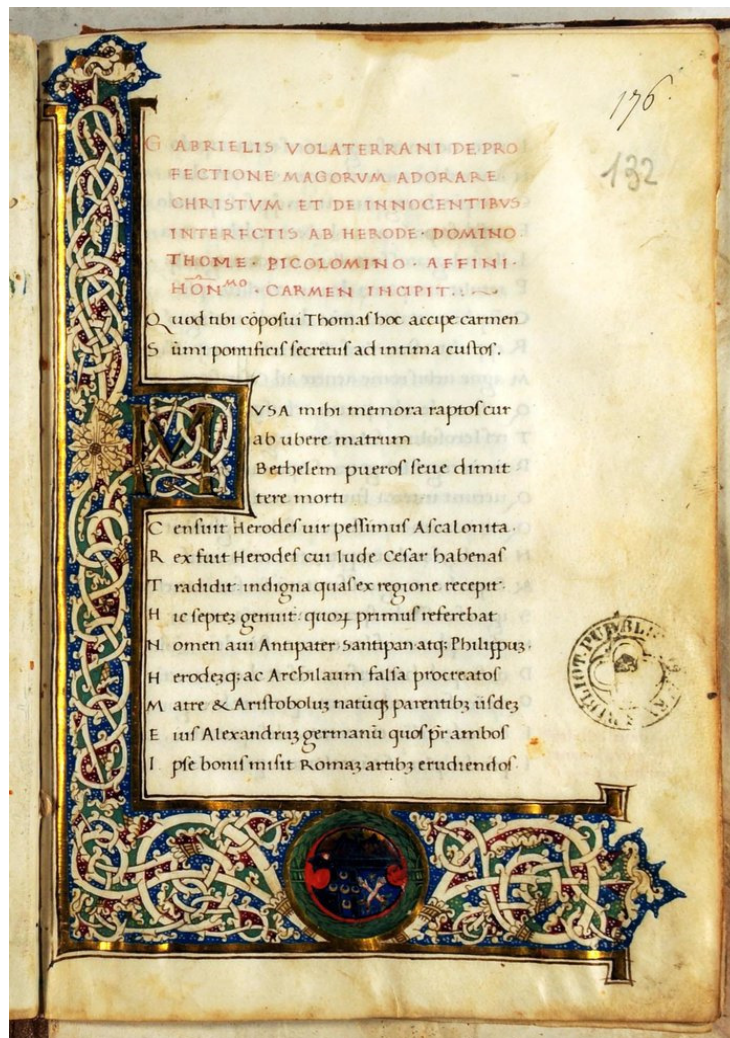 176
132
GABRIELIS VOLATERRANI DE PRO
FECTIONE MAGORVM ADORARE
CHRISTVM · ET DE INNOCENTIBVS
INTERFCTIS AB HERODE · DOMINO
THOME · PICOLOMINO · AFFINI ·
HOÑ^MO · CARMEN INCIPIT ·
Quod tibi cōposui Thomas hoc accipe carmen
Sūmi pontificis secretus ad intima custos.
MVSA mihi memora raptos cur
ab ubere matrum
Bethelem pueros seue dimit
tere morti
Censuit Herodes uir pessimus Ascalonita.
Rex fuit Herodes cui Iude Cesar habenas
Tradidit indigna quas ex regione recepit.
Hic septeȝ genuit. quoꝝ primus referebat
Nomen aui Antipater Santipan atqꝫ Philippuȝ.
Herodeȝqꝫ ac Archilaum falsa procreatos
Matre & Aristoboluȝ natūqꝫ parentibꝫ iisdeȝ
Eius Alexandruȝ germanū quos p̄r ambos
Ipse bonis misit Romaȝ artibꝫ erudiendos.
BIBLIOT. PUBBLI